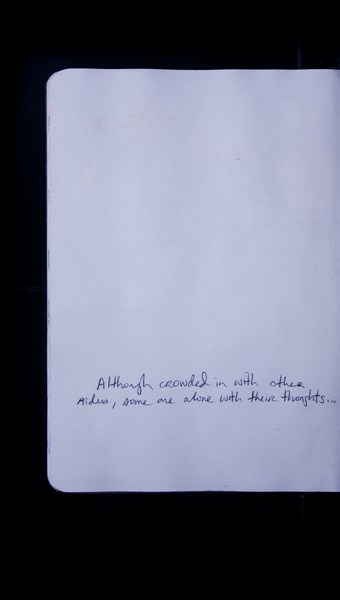 Although crowded in with other
riders, some are alone with their thoughts...